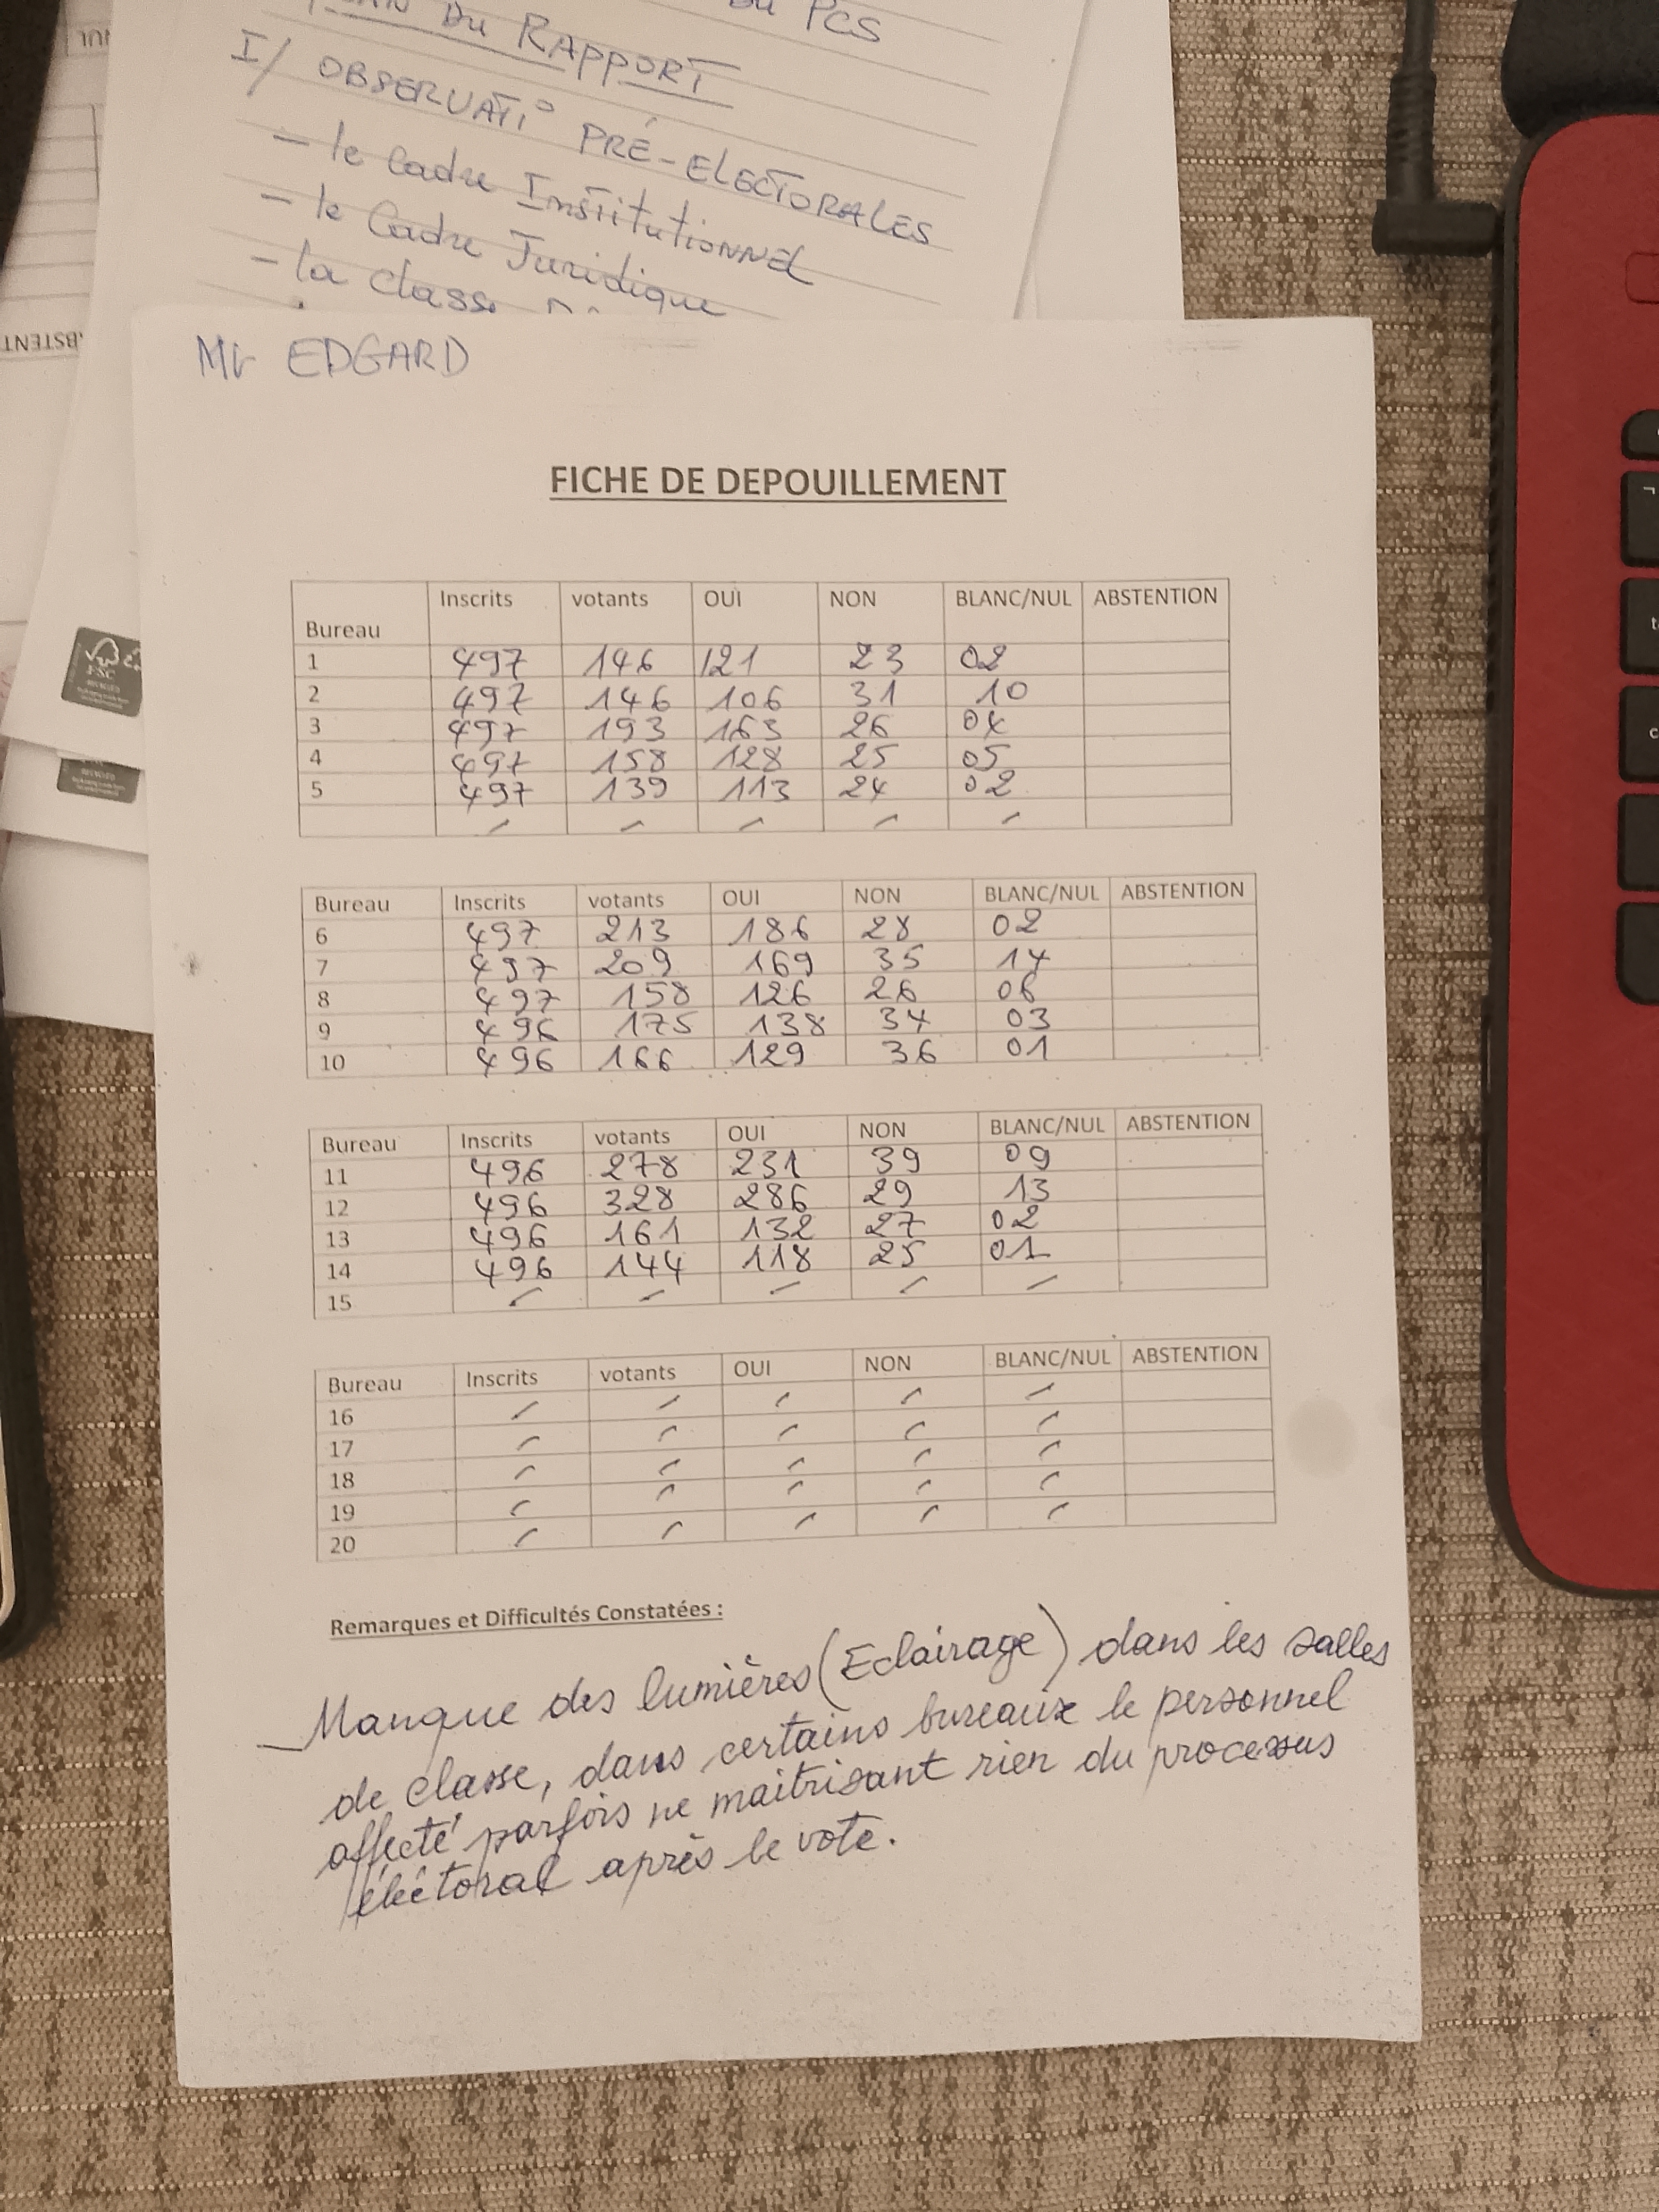 DU PCS
DU RAPPORT
I/ OBSERVATI° PRÉ-ELECTORALES
- le Cadre Institutionnel
- le Cadre Juridique
- la classe
ABSTENT
Mr EDGARD
FICHE DE DEPOUILLEMENT
Bureau Inscrits votants OUI NON BLANC/NUL ABSTENTION
1 497 146 121 23 02
2 497 146 106 31 10
3 497 193 163 26 04
4 497 158 128 25 05
5 497 139 113 24 02
Bureau Inscrits votants OUI NON BLANC/NUL ABSTENTION
6 497 213 186 28 02
7 497 209 169 35 14
8 497 158 126 26 06
9 496 175 138 34 03
10 496 166 129 36 01
Bureau Inscrits votants OUI NON BLANC/NUL ABSTENTION
11 496 278 231 39 09
12 496 328 286 29 13
13 496 161 132 27 02
14 496 144 118 25 01
15 - - - - -
Bureau Inscrits votants OUI NON BLANC/NUL ABSTENTION
16 - - - - -
17 - - - - -
18 - - - - -
19 - - - - -
20 - - - - -
Remarques et Difficultés Constatées :
_ Manque des lumières (Eclairage) dans les salles
de classe, dans certains bureaux le personnel
affecté parfois ne maitrisant rien du processus
éléctoral après le vote.
FSC